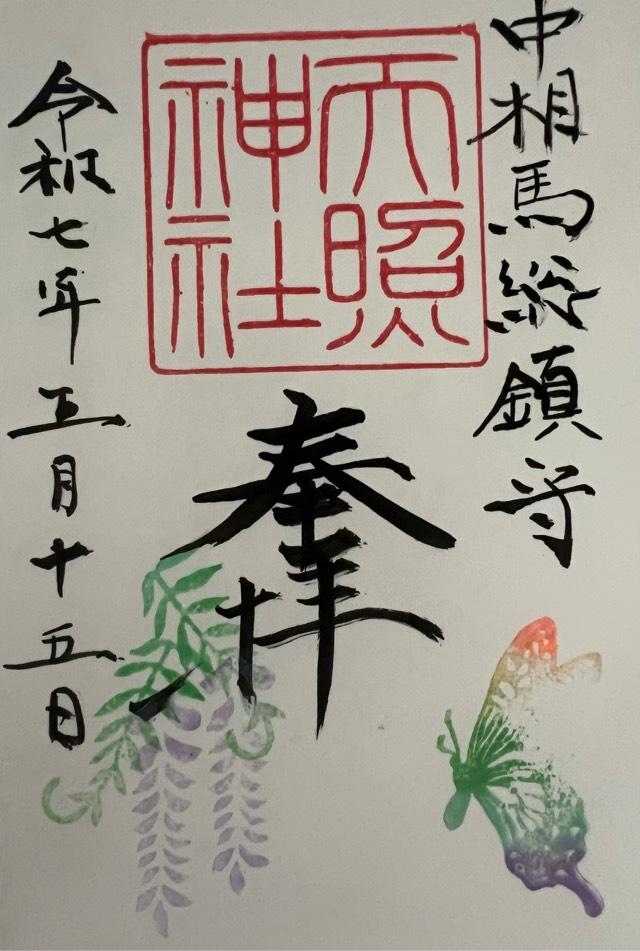 中相馬総鎮守
天照
神社
奉拝
令和七年五月十五日